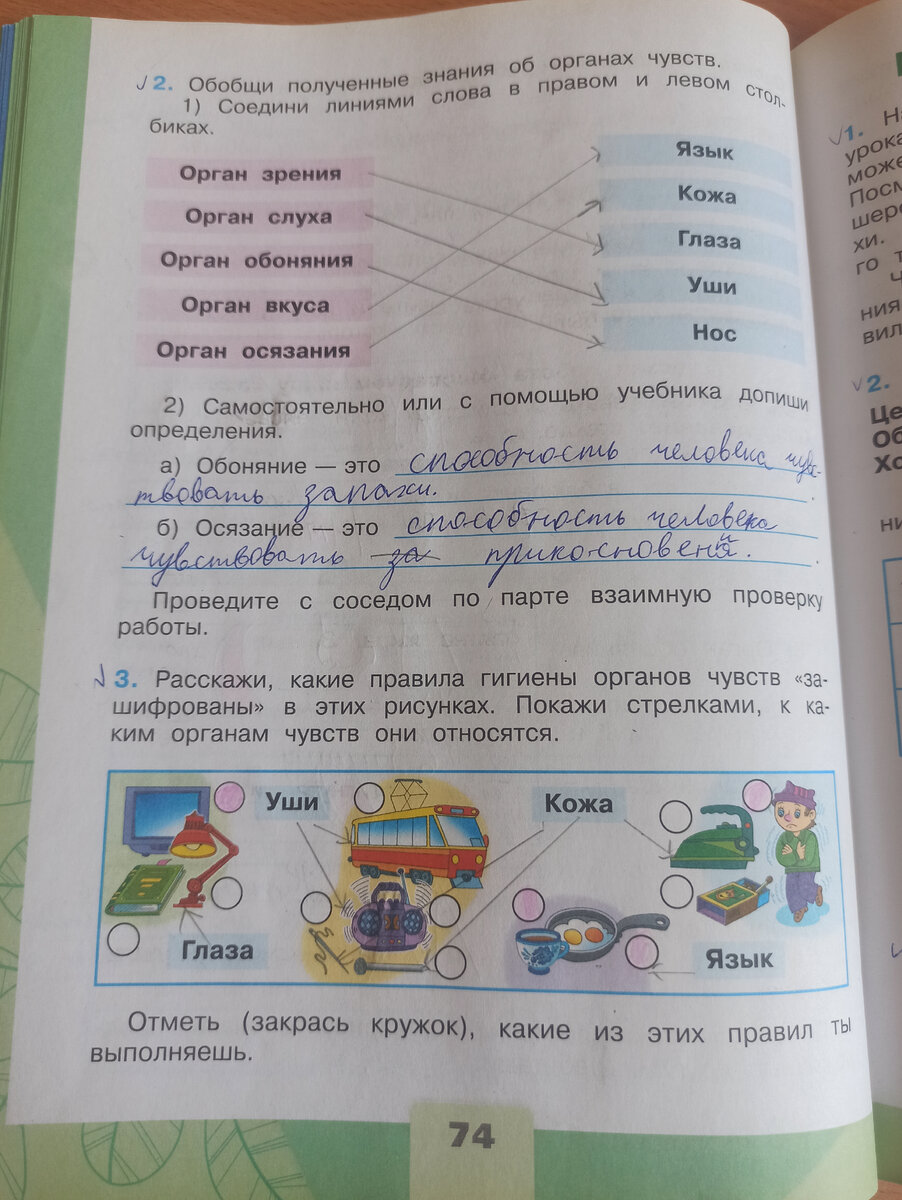 2. Обобщи полученные знания об органах чувств.
1) Соедини линиями слова в правом и левом стол-
биках.
Орган зрения
Орган слуха
Орган обоняния
Орган вкуса
Орган осязания
Язык
Кожа
Глаза
Уши
Нос
2) Самостоятельно или с помощью учебника допиши
определения.
а) Обоняние — это способность человека чувс-
твовать запахи.
б) Осязание — это способность человека
чувствовать за прикосновений.
Проведите с соседом по парте взаимную проверку
работы.
3. Расскажи, какие правила гигиены органов чувств «за-
шифрованы» в этих рисунках. Покажи стрелками, к ка-
ким органам чувств они относятся.
Уши
Кожа
Глаза
Язык
Отметь (закрась кружок), какие из этих правил ты
выполняешь.
74
1. На
урока
може
Посм
шеро
хи.
го т
Ч
ния
вил
2.
Це
Об
Хо
ни